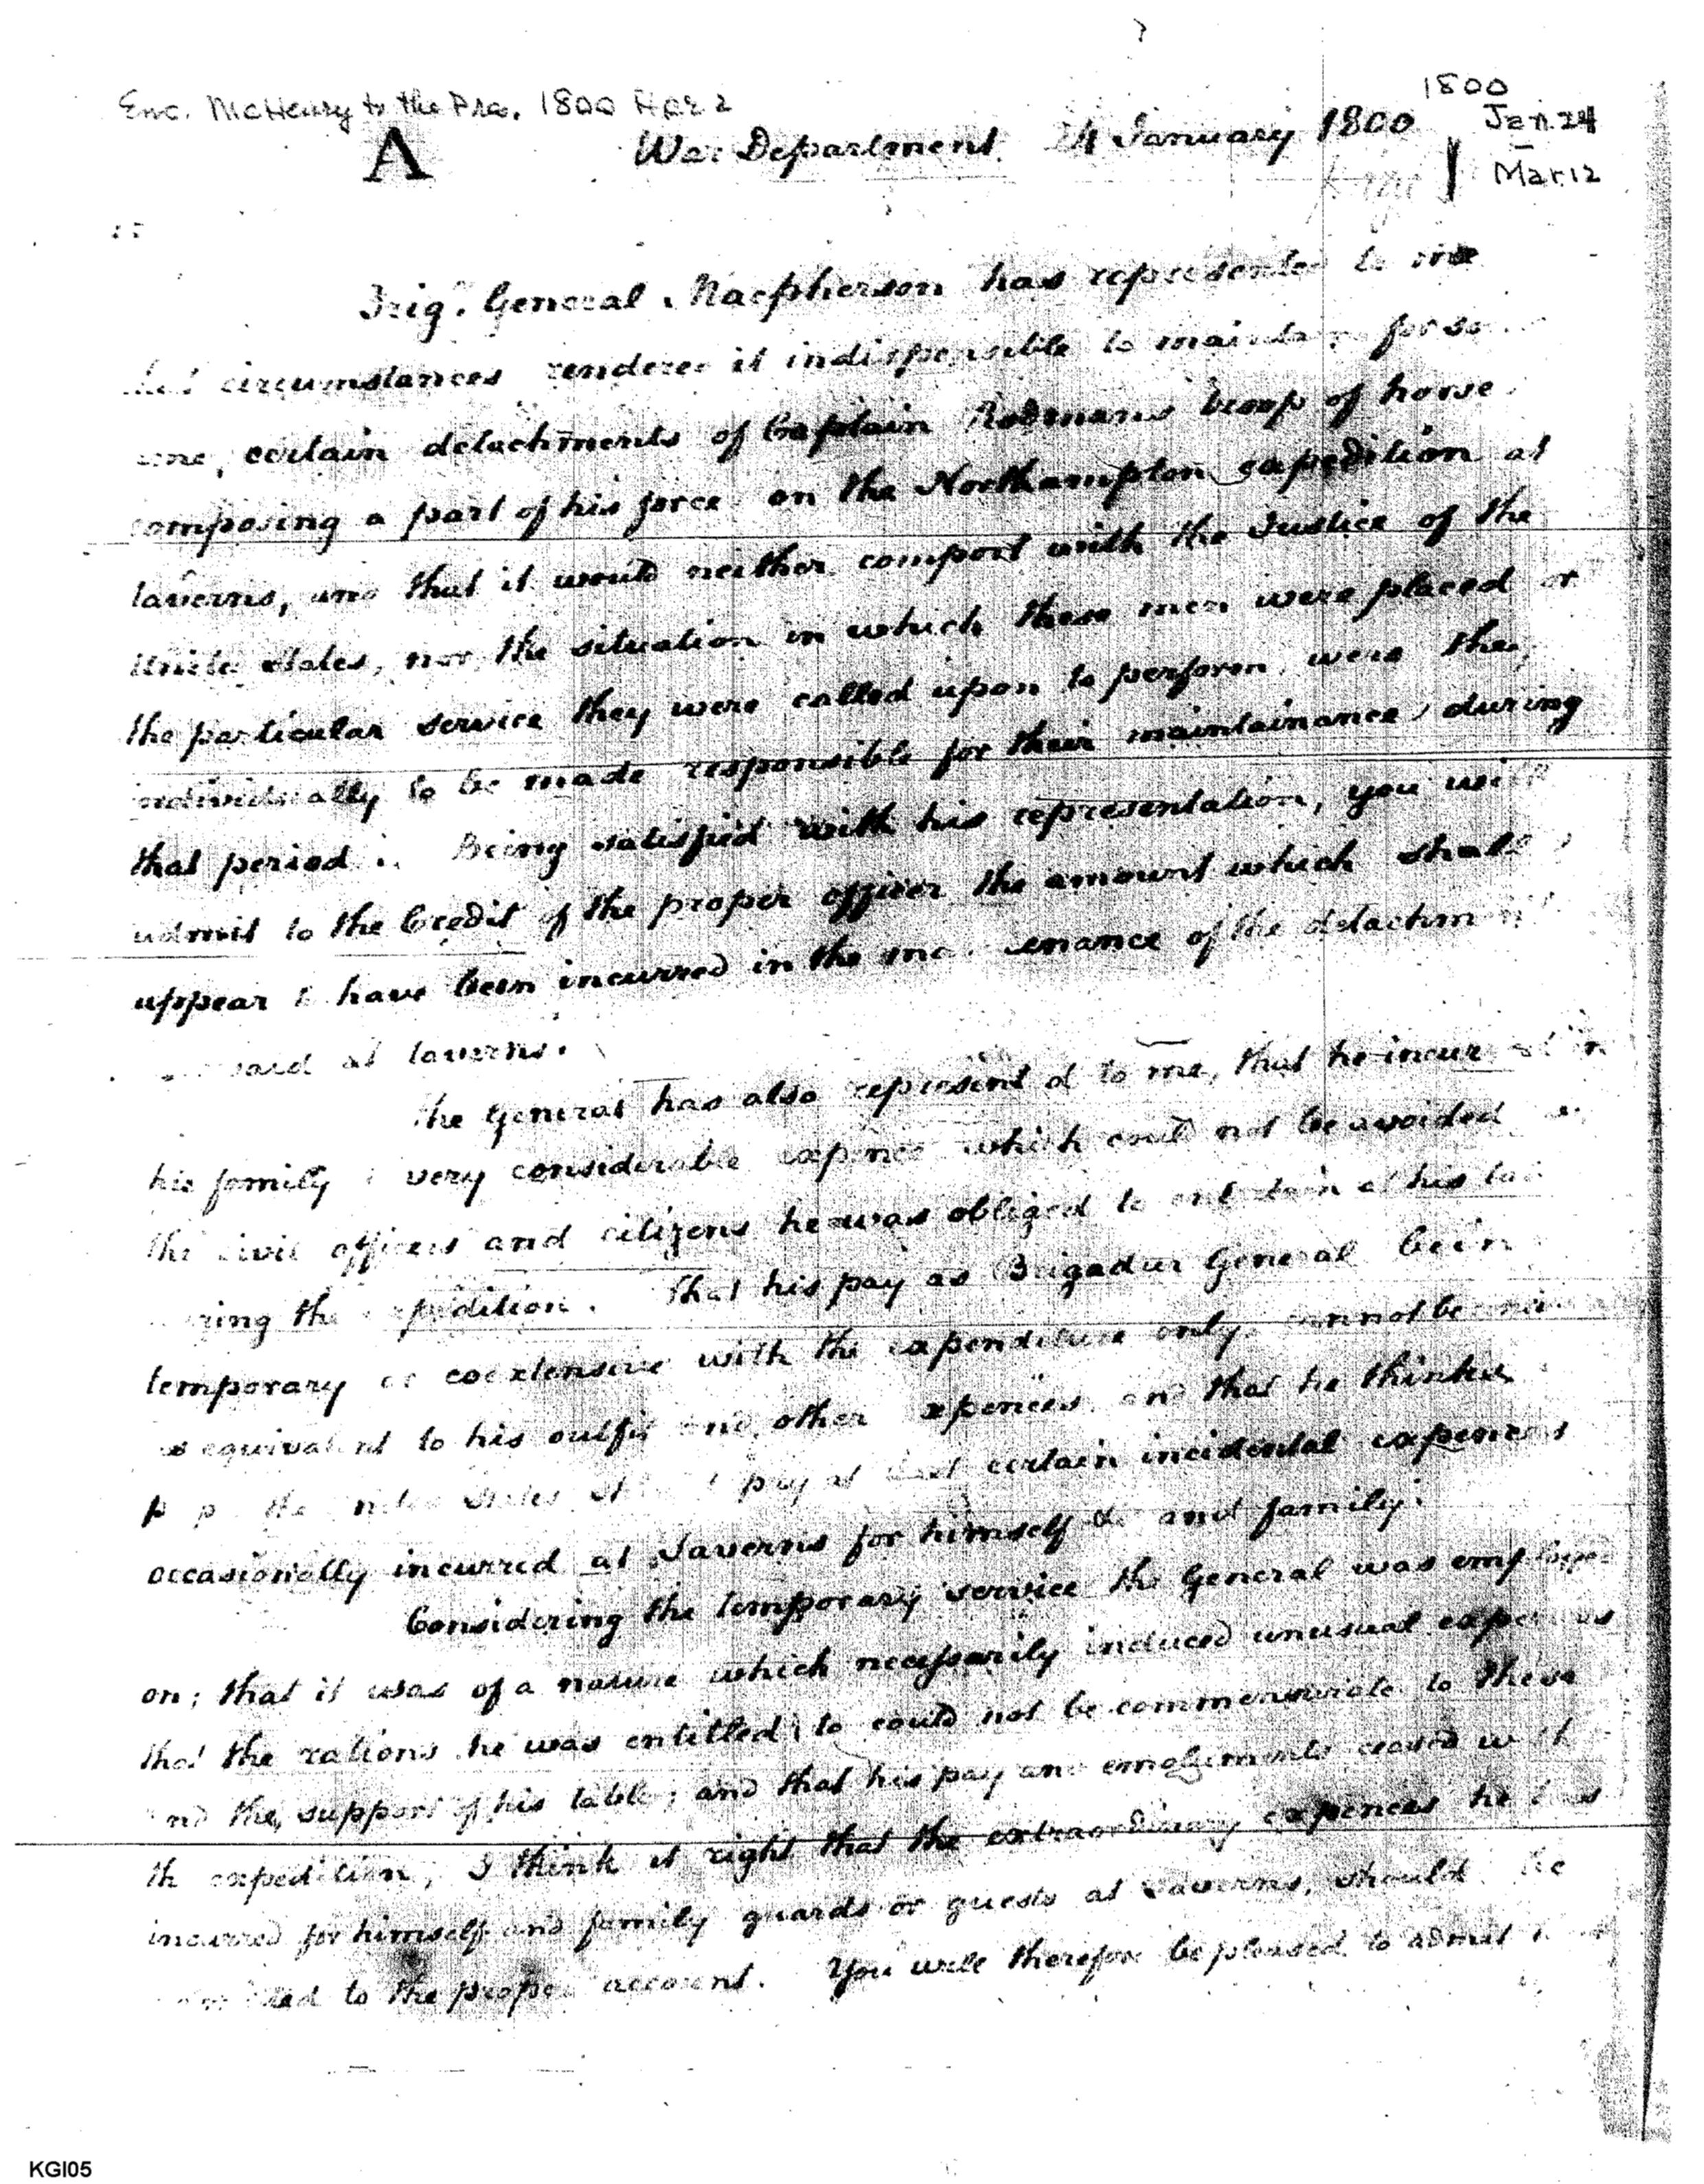 1800
Enc. McHenry to the Pres. 1800 Apr 2
Jan. 24
A War Department 24 January 1800
Mar. 12
Brig.r General Macpherson has represented to me
that circumstances rendered it indispensible to maintain for so
certain detachments of Captain Rodmans troop of horse
composing a part of his force on the Northampton expedition at
taverns, and that it would neither comport with the Justice of the
United States, nor the situation in which these men were placed or
the particular service they were called upon to perform were they
individually to be made responsible for their maintainance during
that period. Being satisfied with his representation, you will
admit to the Credit of the proper officer the amount which shall
appear to have been incurred in the maintenance of the detachment
said at taverns.
The General has also represented to me, that he incurred in
his family a very considerable expence which could not be avoided
the civil officers and citizens he was obliged to entertain at his table
during the expedition. That his pay as Brigadier General being
temporary or coextensive with the expenditure only cannot be
as equivalent to his outfit and other expences and that he thinks
the United States should pay at least certain incidental expences
occasionally incurred at Taverns for himself & and family.
Considering the temporary service the General was employed
on; that it was of a nature which necessarily induced unusual expences
that the rations he was entitled to could not be commensurate to these
and the support of his table; and that his pay and emoluments ceased with
the expedition, I think it right that the extraordinary expences he has
incurred for himself and family guards or guests at Taverns, should be
to the proper account. You will therefore be pleased to admit
KGI05